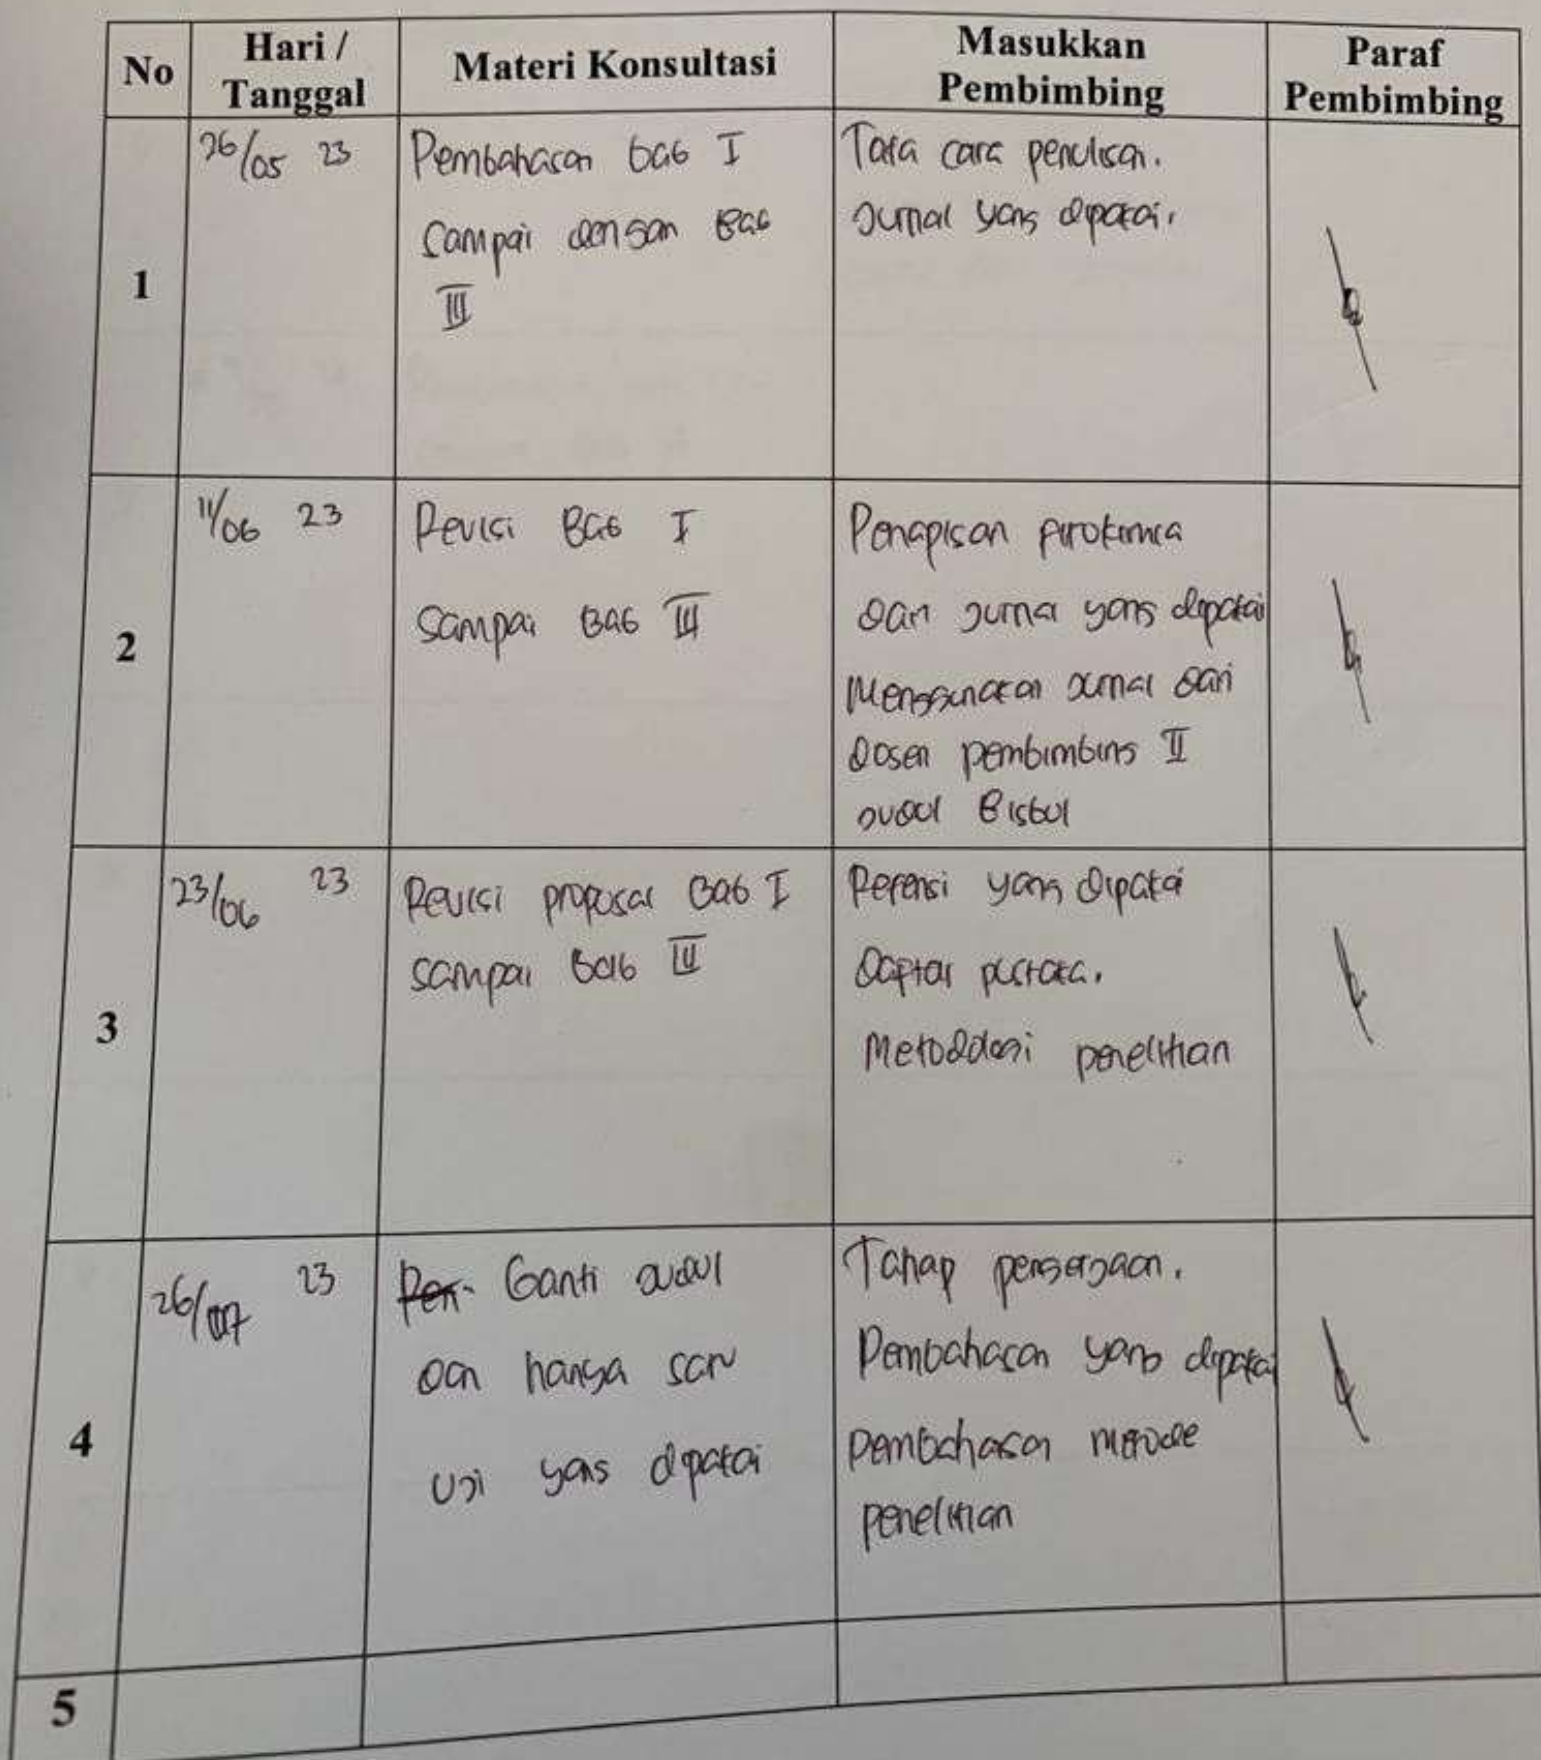 No
Hari /
Tanggal
Materi Konsultasi
Masukkan
Pembimbing
Paraf
Pembimbing
1
26/05 23
Pembahasan bab I
Sampai dengan Bab
III
Tata cara penulisan.
Jurnal yang dipakai.
2
11/06 23
Revisi Bab I
Sampai Bab III
Penapisan fitokimia
dari jurnal yang dipakai
Menggunakan jurnal dari
Dosen pembimbing II
Judul
3
23/06 23
Revisi proposal Bab I
sampai Bab III
Refensi yang dipakai
Daftar pustaka.
Metodologi penelitian
4
26/07 23
Ganti judul
dan hanya satu
Uji yang dipakai
Tahap pengerjaan.
Pembahasan yang dipakai
pembahasan metode
penelitian
5